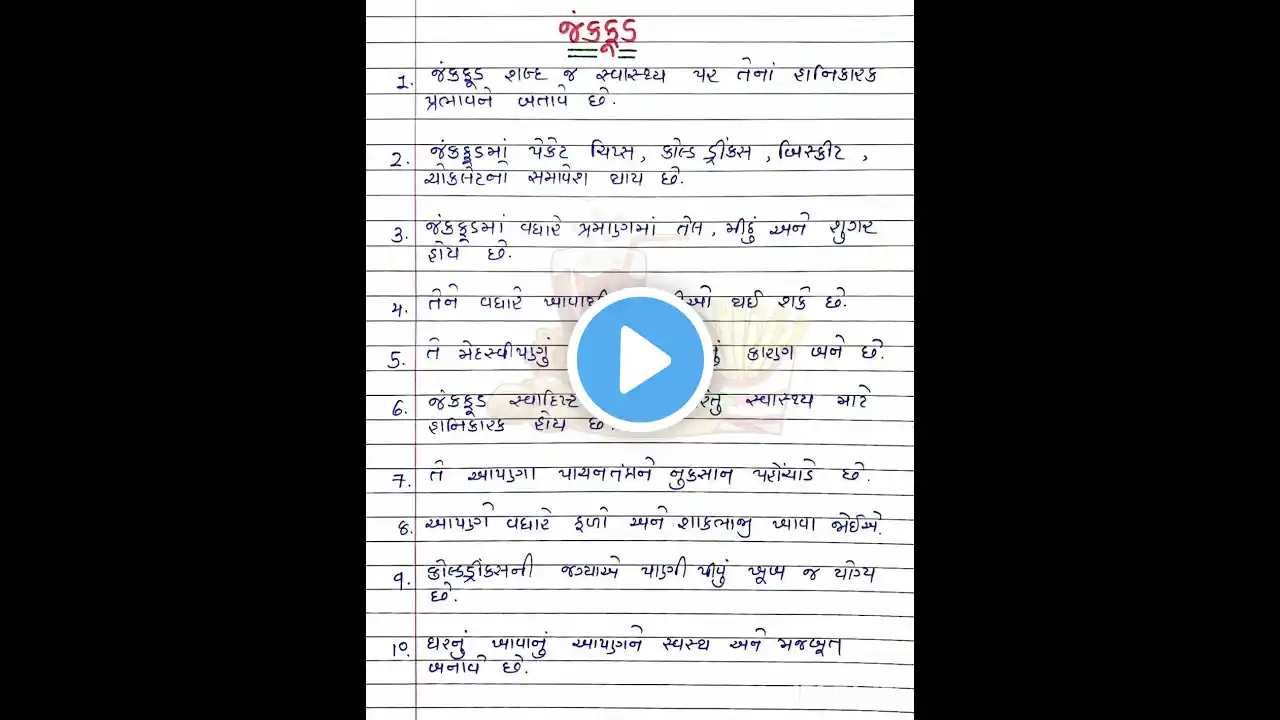 જંકફૂડ
1. જંકફૂડ શબ્દ જ સ્વાસ્થ્ય પર તેનાં હાનિકારક
પ્રભાવને બતાવે છે.
2. જંકફૂડમાં પેકેટ ચિપ્સ, કોલ્ડ ડ્રીંકસ, બિસ્કીટ,
ચોકલેટનો સમાવેશ થાય છે.
3. જંકફૂડમાં વધારે પ્રમાણમાં તેલ, મીઠું અને શુગર
હોય છે.
4. તેને વધારે ખાવાથી થઈ શકે છે.
5. તે મેદસ્વીપણું કારણ બને છે.
6. જંકફૂડ સ્વાદિષ્ટ સ્વાસ્થ્ય માટે
હાનિકારક હોય છે.
7. તે આપણા પાચનતંત્રને નુકસાન પહોંચાડે છે.
8. આપણે વધારે ફળો અને શાકભાજી ખાવા જોઈએ.
9. કોલ્ડડ્રીંકસની જગ્યાએ પાણી પીવું ખૂબ જ યોગ્ય
છે.
10. ઘરનું ખાવાનું આપણને સ્વસ્થ અને મજબૂત
બનાવે છે.